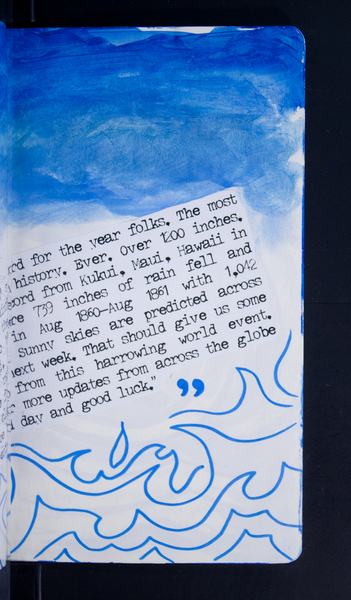 for the year folks. The most
history. Ever. Over 1200 inches.
from Kukui, Maui, Hawaii in
739 inches of rain fell and
in Aug 1860-Aug 1861 with 1,042
Sunny skies are predicted across
next week. That should give us some
from this harrowing world event.
more updates from across the globe
day and good luck." ”